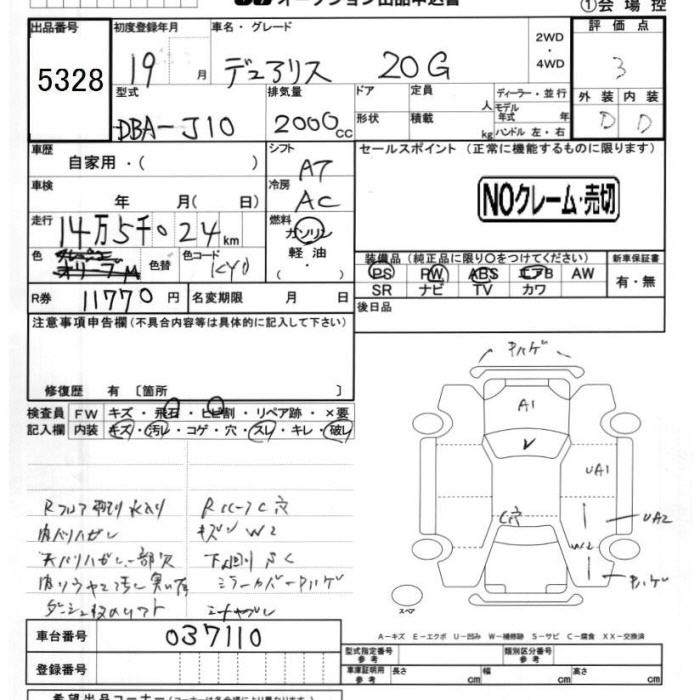 オークション出品申込書
①会場控
出品番号 初度登録年月 車名・グレード 2WD・4WD 評価点
5328 19 月 デュアリス 20G 3
型式 排気量 ドア 定員 人 ディーラー・並行 外装 内装
DBA-J10 2000cc 形状 積載 kg モデル年式 年 ハンドル 左・右 D D
車歴 自家用・( ) シフト AT セールスポイント (正常に機能するものに限ります)
車検 年 月( 日) 冷房 AC NOクレーム・売切
走行 14万5千024km 燃料 ガソリン 軽油 ・
色 オリーブM 色替 色コード KY0
装備品 (純正品に限り○をつけてください) 新車保証書
PS PW ABS エアB AW 有・無
SR ナビ TV カワ
R券 11770円 名変期限 月 日 後日品
注意事項申告欄 (不具合内容等は具体的に記入して下さい)
修復歴 有 〔箇所 〕
検査員 FW キズ・飛石・ヒビ割・リペア跡・×要
記入欄 内装 キズ・汚レ・コゲ・穴・スレ・キレ・破レ
キズ W2
内バリハガレ
天バリハガレ一部欠
下回りサC
ハゲ
A1
UA1
UA2
W2
C穴
ハゲ
スペア
A-キズ E-エクボ U-凹み W-補修跡 S-サビ C-腐食 XX-交換済
車台番号 037110
登録番号
型式指定番号 参考 類別区分番号 参考
車庫証明用 参考 長さ cm 幅 cm 高さ cm
希望出品コーナー